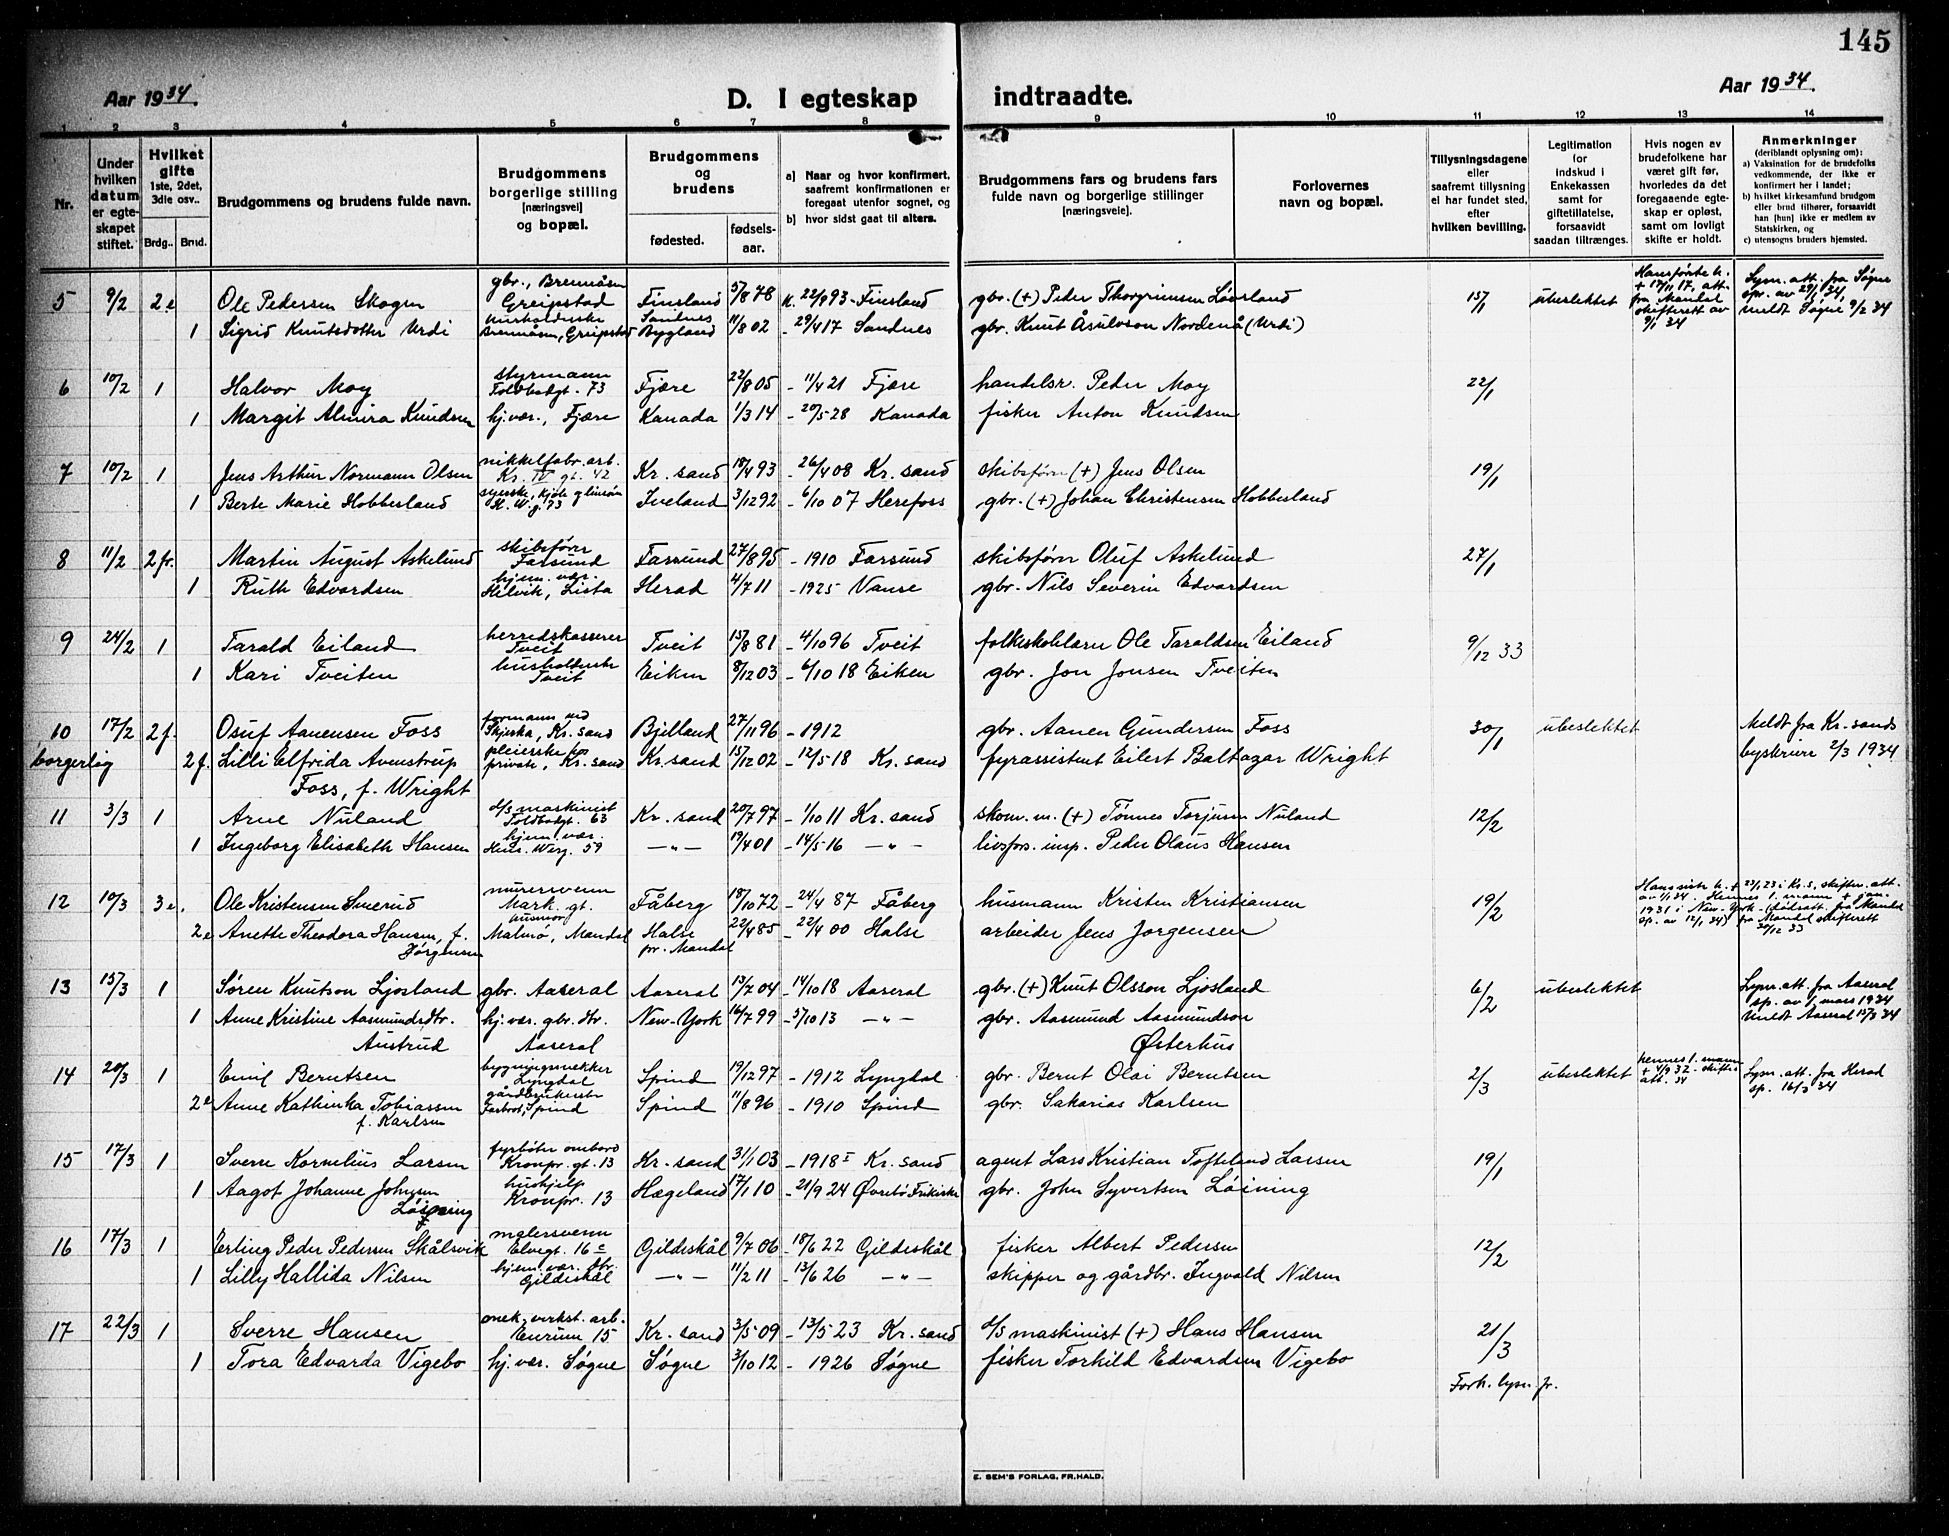 145
Aar 1934.
D. I egteskap indtraadte.
Aar 1934.
1 2 3 4 5 6 7 8 9 10 11 12 13 14
Nr.
Under hvilken datum er egteskapet stiftet.
Hvilket gifte 1ste, 2det, 3die osv..
Brdg.. Brud.
Brudgommens og brudens fulde navn.
Brudgommens borgerlige stilling [næringsvei] og bopæl.
Brudgommens og brudens
fødested.
fødsels-aar.
a) Naar og hvor konfirmert, saafremt konfirmationen er foregaat utenfor sognet, og
b) hvor sidst gaat til alters.
Brudgommens fars og brudens fars fulde navn og borgerlige stillinger [næringsveie].
Forlovernes navn og bopæl.
Tillysningsdagene eller saafremt tillysning ei har fundet sted, efter hvilken bevilling.
Legitimation for indskud i Enkekassen samt for giftetillatelse, forsaavidt saadan tiltrænges.
Hvis nogen av brudefolkene har været gift før, hvorledes da det foregaaende egteskap er opløst, samt om lovligt skifte er holdt.
Anmerkninger (deriblandt oplysning om): a) Vaksination for de brudefolks vedkommende, der ikke er konfirmert her i landet; b) hvilket kirkesamfund brudgom eller brud tilhører, forsaavidt han [hun] ikke er medlem av Statskirken, og c) utensogns bruders hjemsted.
5 9/2 2e Ole Pedersen Skogen gbr., Brennåsen Greipstad Finsland 5/8 78 K. 22/9 93 - Finsland gbr. (+) Peder Thorgrimsen Løvland 15/1 ubeslektet Hans første h. + 17/11 17, att. fra Mandal skifterett av 9/1 34 Lysn. att. fra Søgne spr. av 29/1 34, meldt Søgne 9/2 34
1 Sigrid Knutsdotter Urdi husholderske Brennåsen, Greipstad Sandnes Bygland 11/8 02 - 29/4 17 Sandnes gbr. Knut Åsulvson Nordenå (Urdi)
6 10/2 1 Halvor Moy styrmann Toldbodgt. 73 Fjære 22/8 05 - 11/4 21 Fjære handelsr. Peder Moy 22/1
1 Margit Almira Knudsen hj.vær., Fjære Kanada 1/3 14 - 20/5 28 Kanada fisker Anton Knudsen
7 10/2 1 Jens Arthur Normann Olsen nikkelfabr. arb. Kr. IV gt. 42 Kr. sand 18/4 93 - 26/4 08 Kr. sand skibsfører (+) Jens Olsen 19/1
1 Berte Marie Hobbesland syerske, H. W. g. 73 Iveland 3/12 92 - 6/10 07 Herefoss gbr. (+) Johan Christensen Hobbesland
8 11/2 2 fr. Martin August Askelund skibsfører Farsund Farsund 27/8 95 - 1910 Farsund skibsfører Oluf Askelund 27/1
1 Ruth Edvardsen hjem. vær. Helvik, Lista Herad 4/7 11 - 1925 Vanse gbr. Nils Severin Edvardsen
9 24/2 1 Tarald Eiland herredskasserer Tveit Tveit 15/8 81 - 4/10 96 Tveit folkeskolelærer Ole Taraldsen Eiland 9/12 33
1 Kari Tveiten husholderske Tveit Eiken 8/12 03 - 6/10 18 Eiken gbr. Jon Jonsen Tveiten
10 17/2 2 f. Osuf Aanensen Foss formann ved Skjerka, Kr. sand Bjelland 27/11 96 - 1912 gbr. Aanen Gundersen Foss 30/1 ubeslektet Meldt fra Kr. sands
borgerlig 2 f. Lilli Elfrida Avenstrup pleierske hos private, Kr. sand Kr. sand 15/12 02 - 12/5 18 Kr. sand fyrassistent Eilert Baltazar Wright byskriver 2/3 1934
Foss, f. Wright
11 3/3 1 Arne Nuland d/s maskinist Toldbodgt. 63 Kr. sand 20/7 97 - 1/10 11 Kr. sand skom. m. (+) Tønnes Torjusen Nuland 12/2
1 Ingeborg Elisabeth Hansen hjem. vær. Henr. Werg. 59 -"- 19/4 01 - 14/5 16 -"- livsfors. insp. Peder Olaus Hansen
12 10/3 3e. Ole Kristensen Smerud murersvenn Mark. gt. Fåberg 18/10 72 - 24/4 87 Fåberg husmann Kristen Kristiansen 19/2 Hans siste h. + 23/1 23 i Kr. s, skiftr. att. av 1/1 34. Hennes 1. mann + jan. 1931 i New-York - (dåbsatt. fra Mandal sp. av 12/1 34) fra Mandal skifterett 30/12 33
2e Anette Theodora Hansen, f. Jørgensen husmor Malmø, Mandal Halse pr. Mandal 22/4 85 - 22/4 00 Halse arbeider Jens Jørgensen
13 15/3 1 Søren Knutson Ljosland gbr. Aaseral Aaseral 13/7 04 - 14/10 18 Aaseral gbr. (+) Knut Olsson Ljosland 6/2 ubeslektet Lysn. att. fra Aaseral sp. av 1. mars 1934 meldt Aaseral 15/3 34
1 Anne Kristine Aasmundsdtr. Austrud hj. vær. gbr. dtr. Aaseral New-York 16/7 99 - 5/10 13 -"- gbr. Aasmund Aasmundson Østerhus
14 20/3 1 Emil Berntsen bygningssnekker Lyngdal Spind 19/12 97 - 1912 Lyngdal gbr. Bernt Olai Berntsen 2/3 ubeslektet hennes 1. mann + 4/9 32. skifter. att. 34 Lysn. att. fra Herad sp. 16/3 34
2e Anne Kathinka Tobiassen f. Karlsen gårdbrukerske Spind Spind 11/8 96 - 1910 Spind gbr. Sakarias Karlsen
15 17/3 1 Sverre Kornelius Larsen fyrbøter ombord Kronpr. gt. 13 Kr. sand 31/1 03 - 1918 I Kr. sand agent Lars Kristian Tofteland Larsen 19/1
1 Aagot Johanne Johnsen Løining hushjelp Kronpr. 13 Hægeland 17/1 10 - 21/9 24 Øvrebø Frikirke gbr. John Syvertsen Løining
16 17/3 1 Erling Peder Pedersen Skålsvik malersvenn Elvegt. 16 c Gildeskål 9/7 06 - 18/6 22 Gildeskål fisker Albert Pedersen 12/2
1 Lilly Hallida Nilsen hjem. vær. dtr. Gildeskål -"- 11/2 11 - 13/6 26 -"- skipper og gårdbr. Ingvald Nilsen
17 22/3 1 Sverre Hansen mek. verkst. arb. 15 Kr. sand 3/5 09 - 13/5 23 Kr. sand d/s maskinist (+) Hans Hansen 21/3
1 Tora Edvarda Vigebo hj. vær. Søgne Søgne 3/10 12 - 1926 Søgne fisker Torkild Edvardsen Vigebo
Forh. lysn. fr.
E. SEM'S FORLAG, FR.HALD.